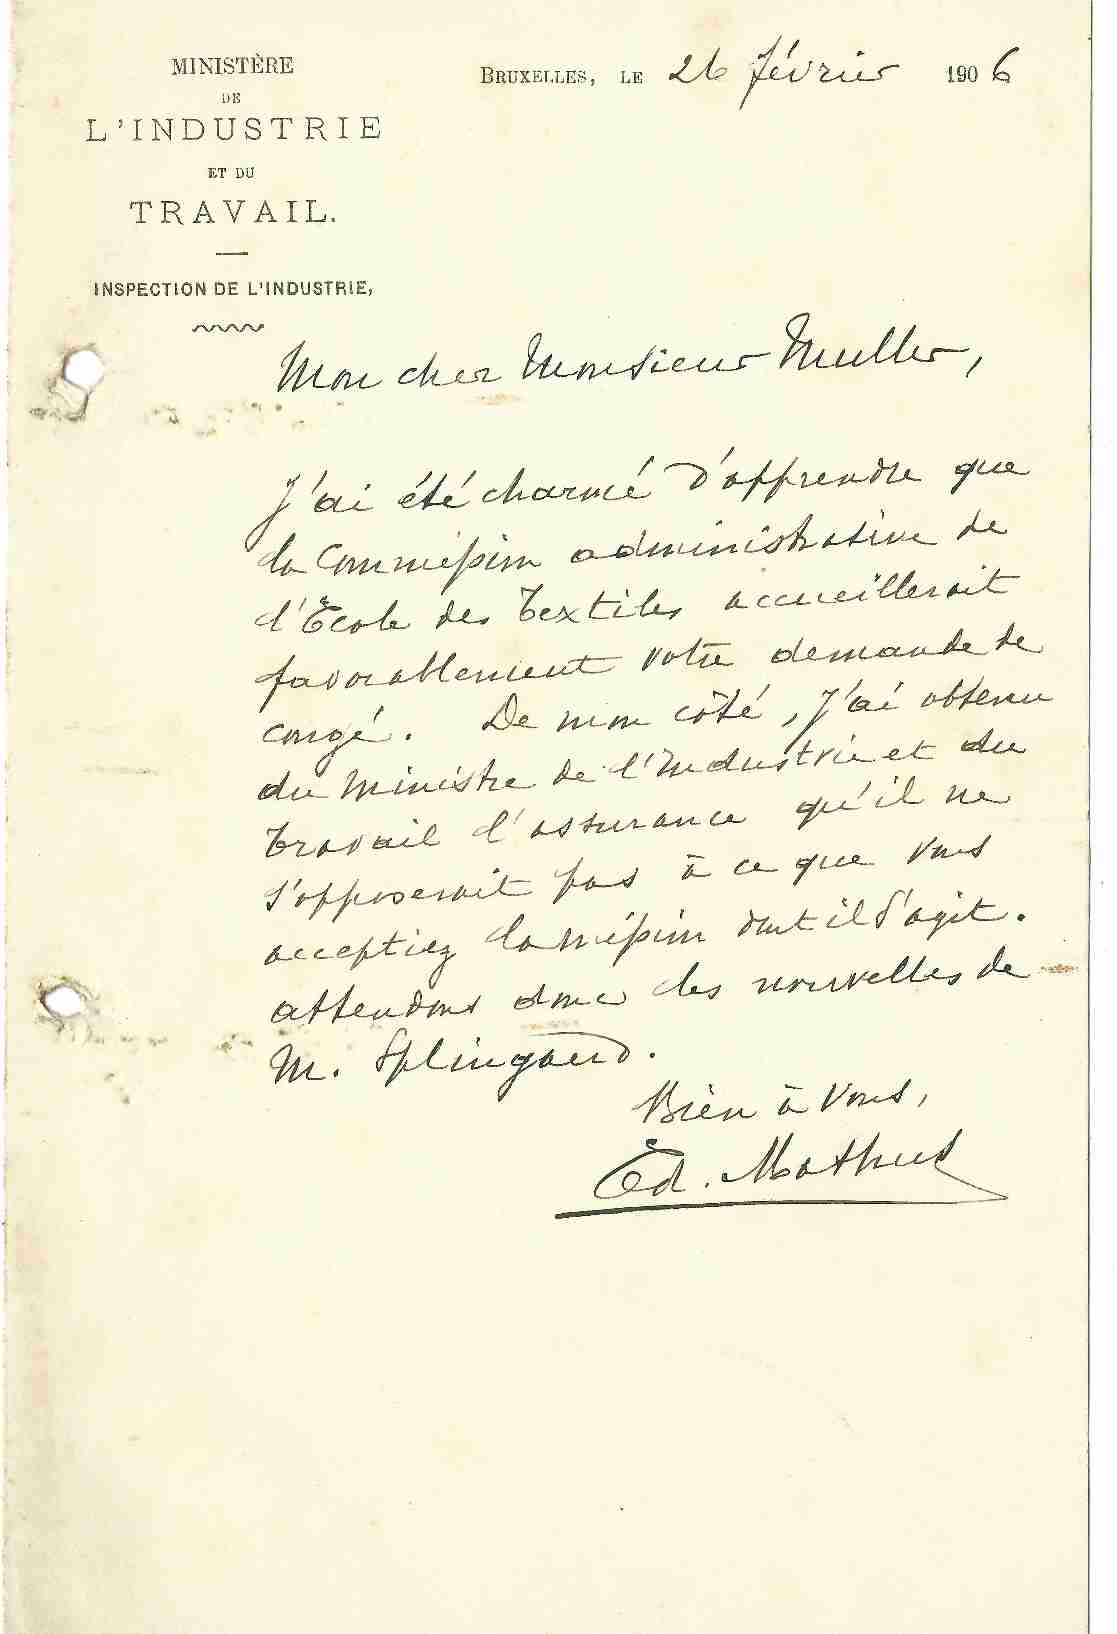 MINISTÈRE
DE
L'INDUSTRIE
ET DU
TRAVAIL.
INSPECTION DE L'INDUSTRIE,
BRUXELLES, LE 26 février 1906
Mon cher Monsieur Muller,
J'ai été charmé d'apprendre que
la Commission administrative de
l'Ecole des Textiles accueillerait
favorablement votre demande de
congé. De mon côté, j'ai obtenu
du Ministre de l'Industrie et du
Travail l'assurance qu'il ne
s'opposerait pas à ce que vous
acceptiez la mission dont il s'agit.
attendons donc les nouvelles de
M. Splingaerd.
Bien à vous,
Ed. Mathus